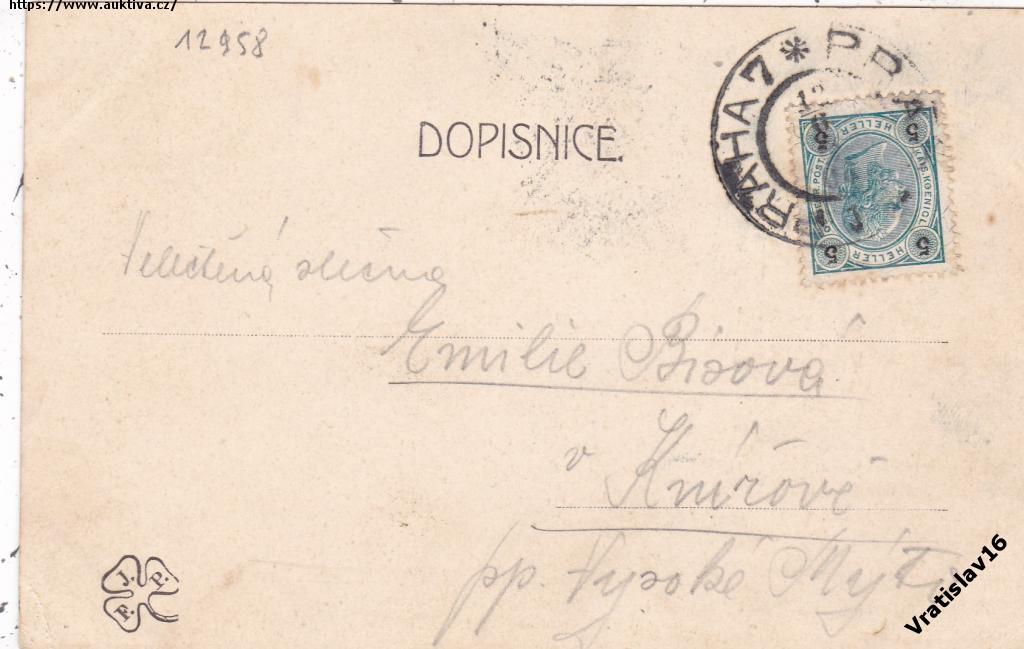 https://www.auktiva.cz/
12958
DOPISNICE.
PRAHA 7 * PRA
12
5 5
HELLER
KAIS. KOENIGL.
POST
HELLER
5 5
Velectěná slečna
Emilie Bísová
v Knířově
pp. Vysoké Mýto
J. P. P.
Vratislav16